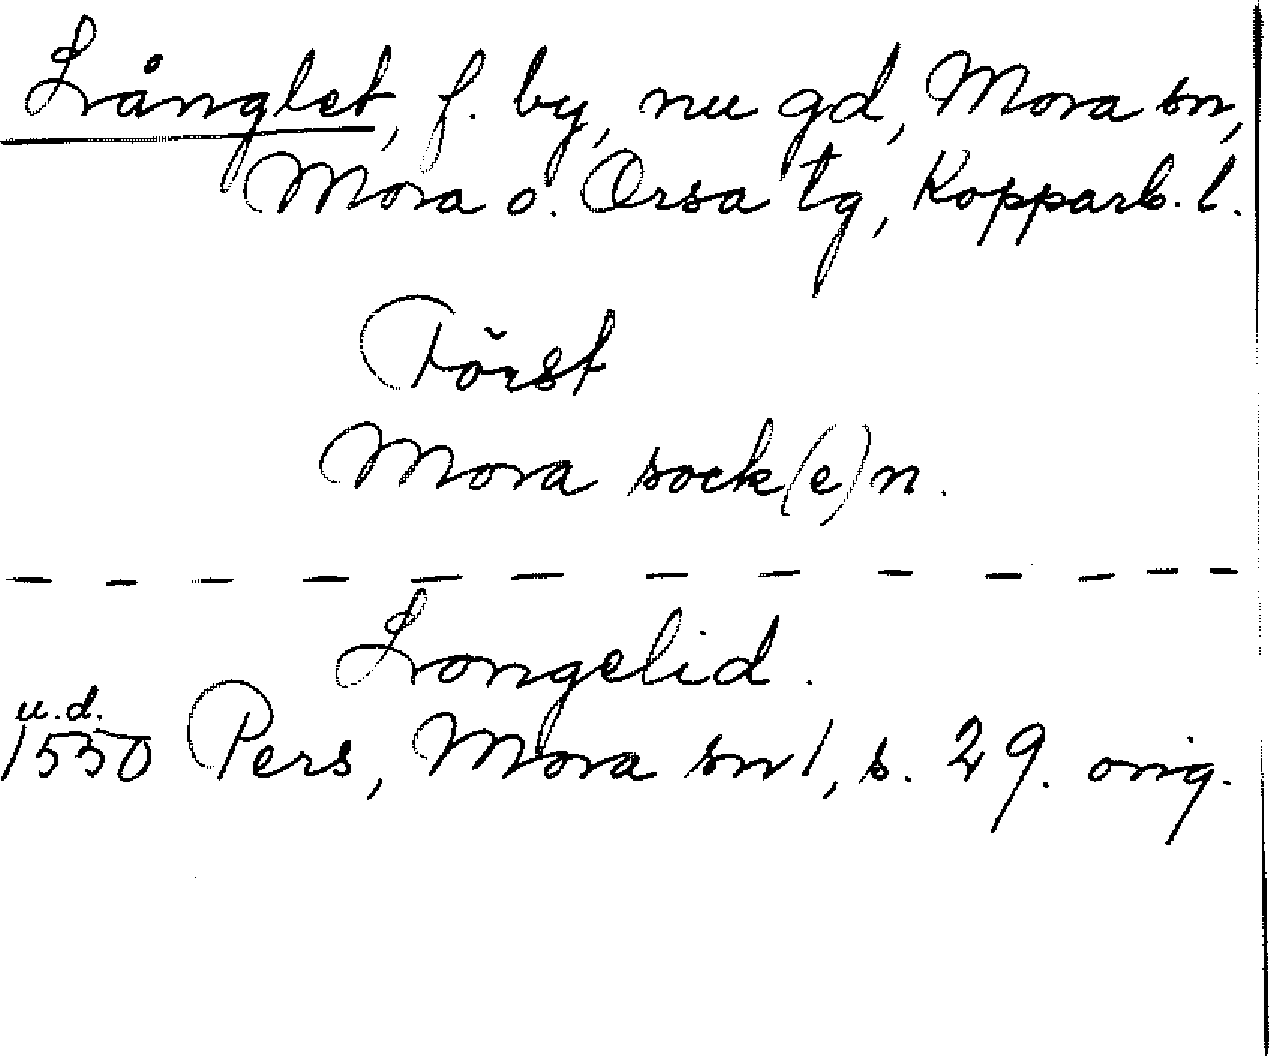 Långlet, f. by, nu gd, Mora sn,
Mora o. Orsa tg, Kopparb. l.
Först
Mora sock(e)n.
Longelid.
u.d.
1550 Pers, Mora sn 1, s. 29. orig.